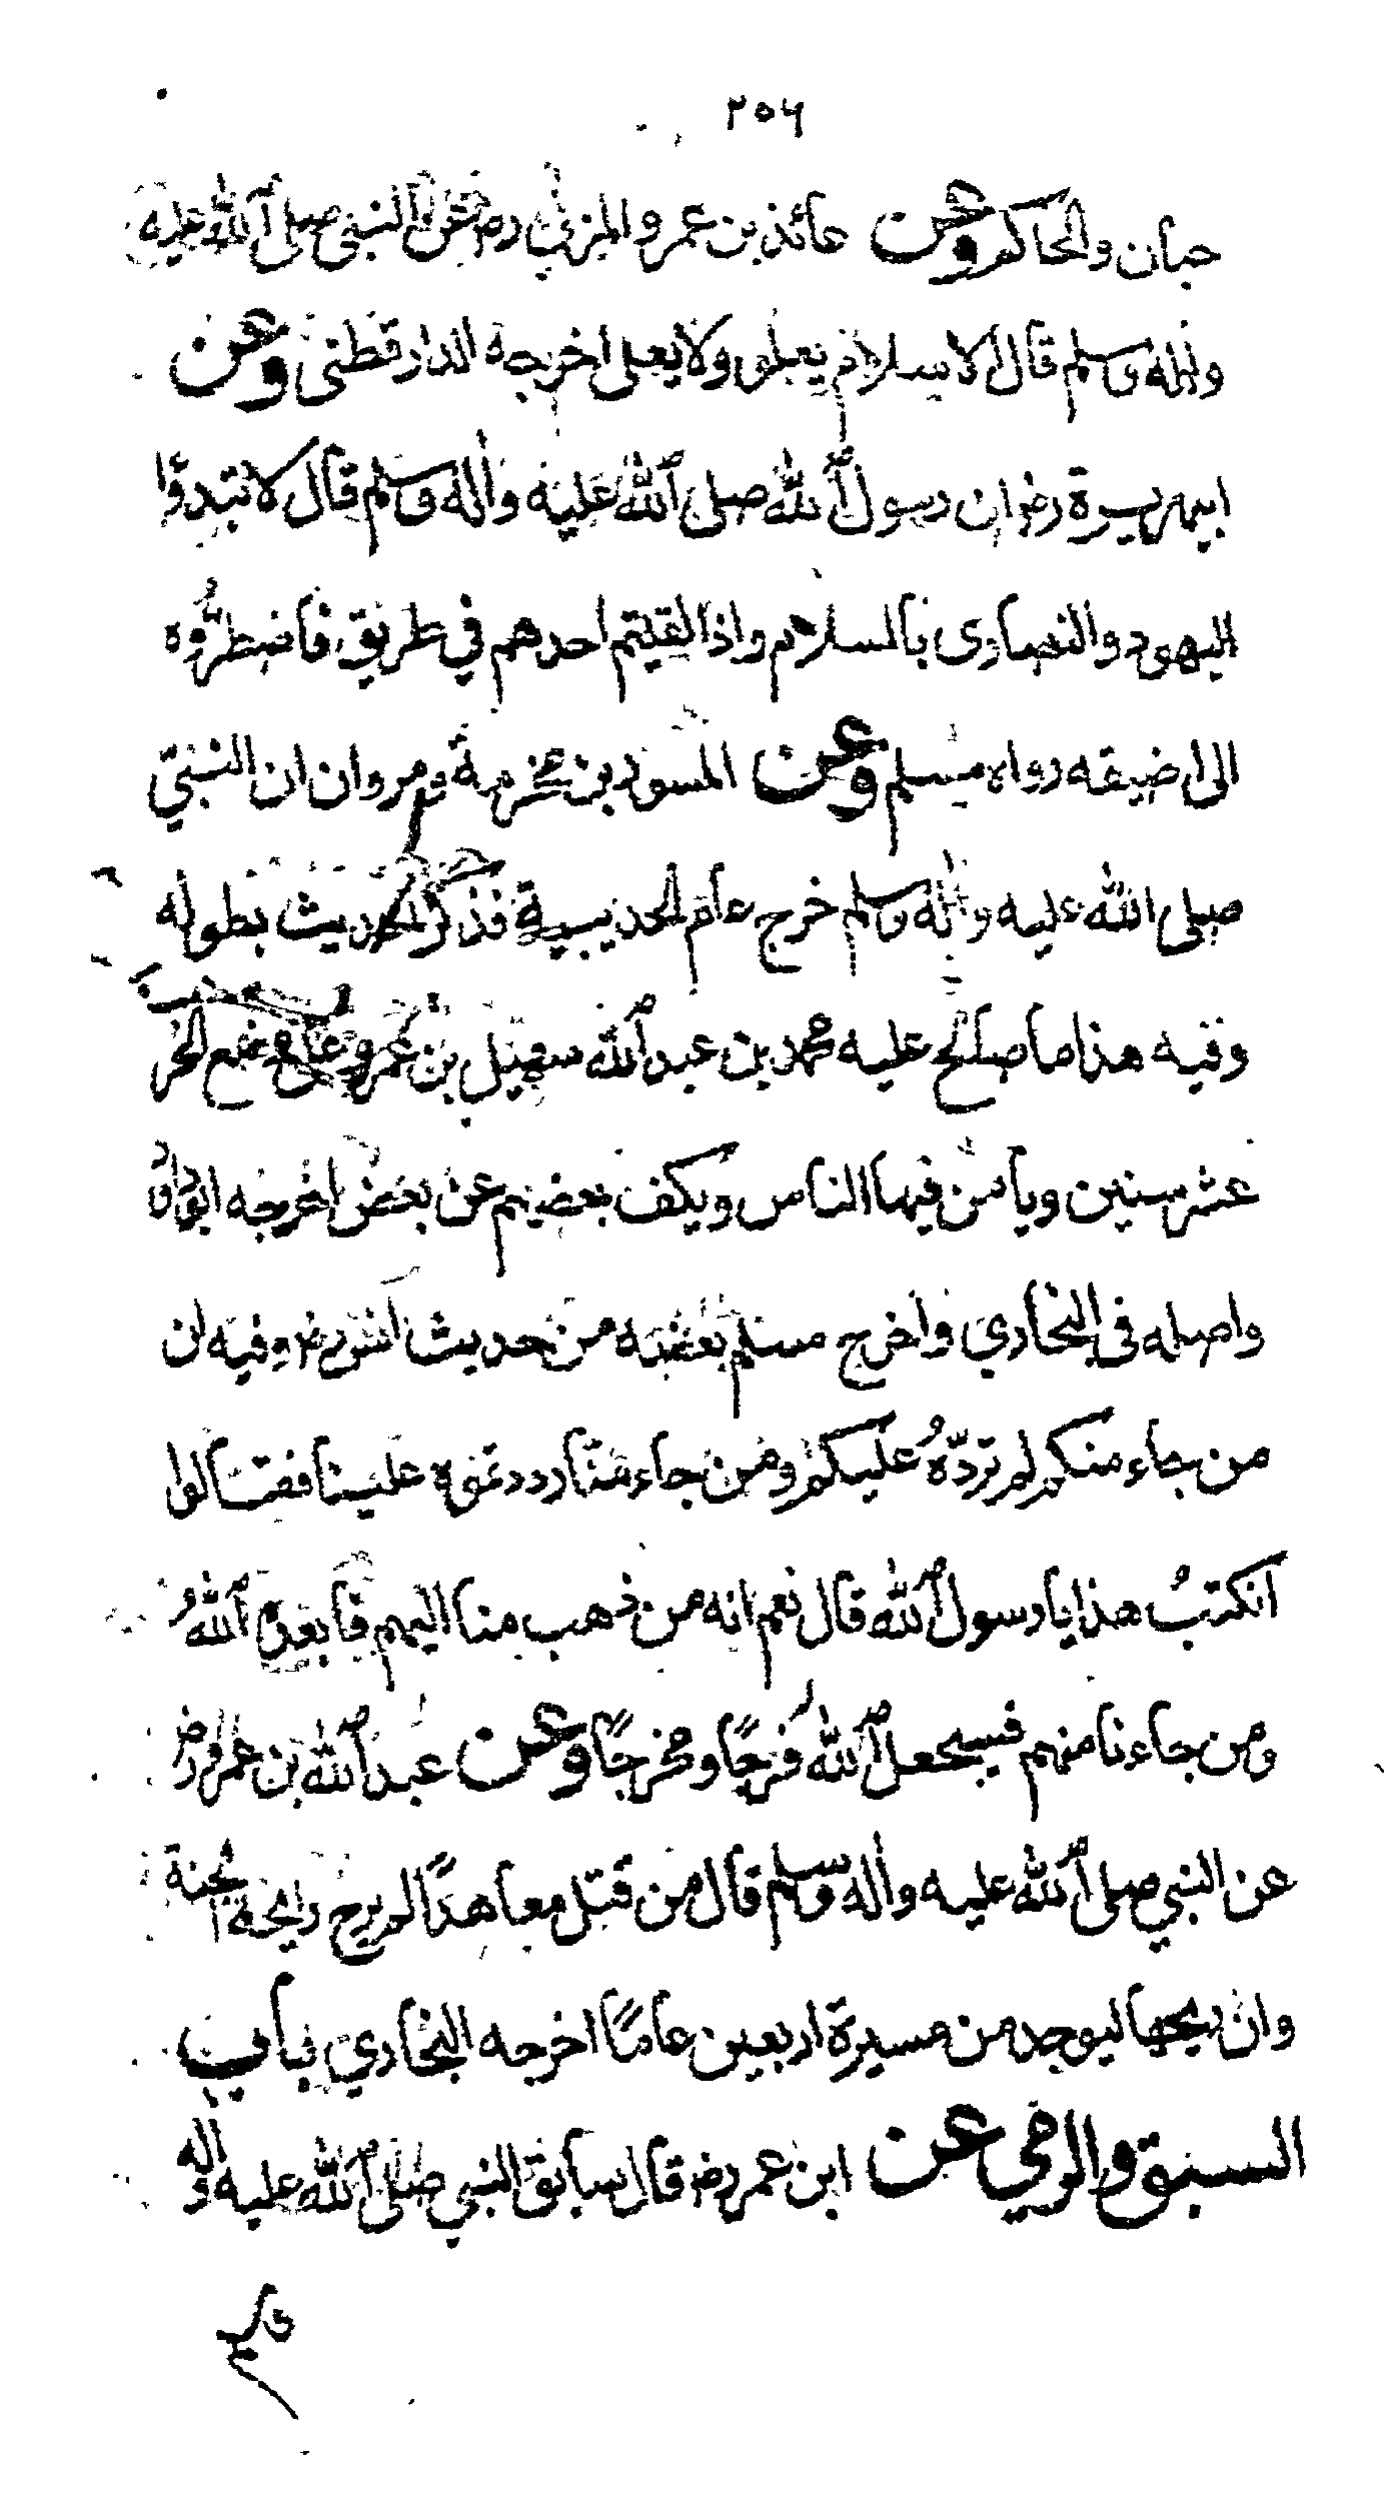 ٢٥٦
حبان والحاكم وعن عائذ بن عمرو المزني رض عن النبي صلى الله عليه
واله وسلم قال الاسلام يعلو ولا يعلى اخرجه الدارقطني وعن
ابي هريرة رض ان رسول الله صلى الله عليه واله وسلم قال لا تبدؤا
اليهود والنصارى بالسلام واذا لقيتم احدهم في طريق فاضطرّوه
الى اضيقه رواه مسلم وعن المسور بن مخرمة ومروان ان النبي
صلى الله عليه واله وسلم خرج عام الحديبية فذكر الحديث بطوله
وفيه هذا ما صالح عليه محمد بن عبد الله سهيل بن عمرو على وضع الحرب
عشر سنين ويأمن فيها الناس ويكف بعضهم عن بعض اخرجه ابو داؤد
واصله في البخاري واخرج مسلم بعضه من حديث انس رض وفيه ان
من جاء منكم لم نردّهُ عليكم ومن جاء منّا رددتموه علينا فقالوا
انكتبُ هذا يا رسول الله قال نعم انه من ذهب منا اليهم فابعده اللهُ
ومن جاءنا منهم فسيجعل الله فرجًا ومخرجًا وعن عبد الله بن عمرو رض
عن النبي صلى الله عليه واله وسلم قال من قتل معاهدًا لم يرح رائحة الجنة
وان ريحها ليوجد من مسيرة اربعين عامًا اخرجه البخاري باب
السبق والرمي عن ابن عمر رض قال سابق النبي صلى الله عليه واله
وسلم